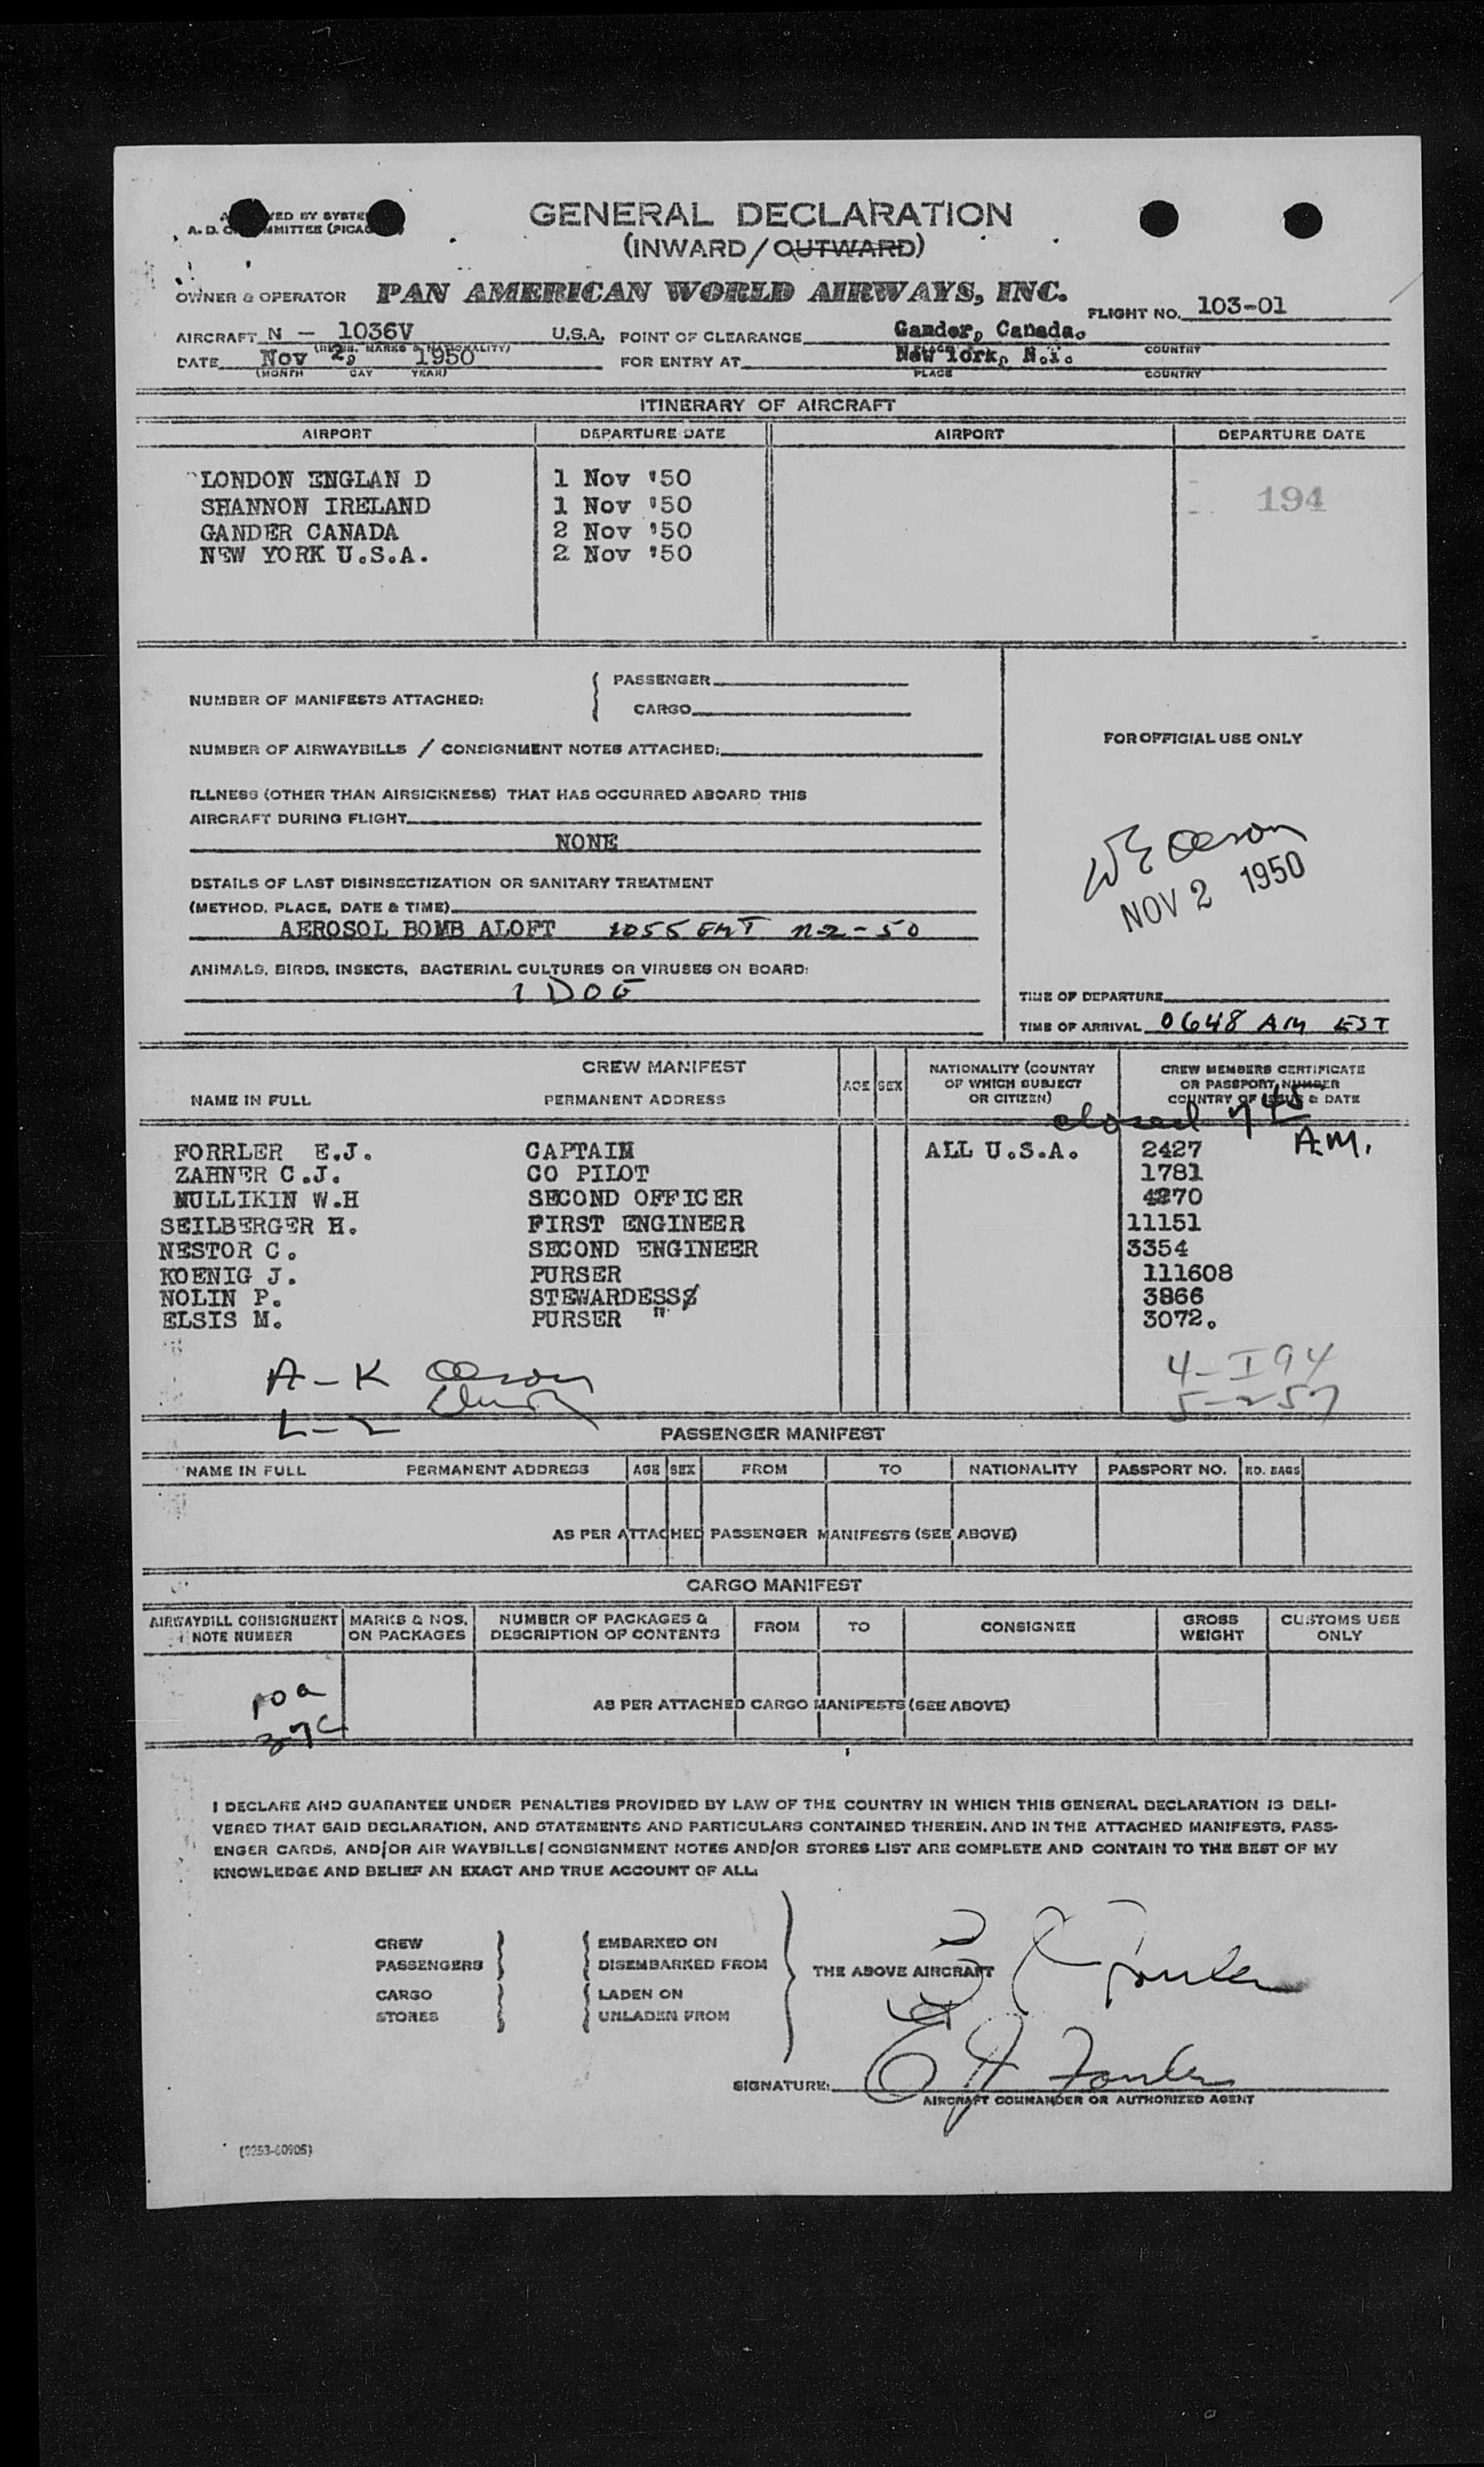 GENERAL DECLARATION
(INWARD/OUTWARD)
OWNER & OPERATOR PAN AMERICAN WORLD AIRWAYS, INC.
FLIGHT NO. 103-01
AIRCRAFT N - 1036V U.S.A. POINT OF CLEARANCE Gander, Canada.
(REGIS. MARKS & NATIONALITY) COUNTRY
DATE Nov 2, 1950 FOR ENTRY AT New York, N.Y.
(MONTH DAY YEAR) PLACE COUNTRY
ITINERARY OF AIRCRAFT
AIRPORT DEPARTURE DATE AIRPORT DEPARTURE DATE
LONDON ENGLAN D 1 Nov '50
SHANNON IRELAND 1 Nov '50 194
GANDER CANADA 2 Nov '50
NEW YORK U.S.A. 2 Nov '50
NUMBER OF MANIFESTS ATTACHED: { PASSENGER
CARGO
NUMBER OF AIRWAYBILLS / CONSIGNMENT NOTES ATTACHED:
FOR OFFICIAL USE ONLY
ILLNESS (OTHER THAN AIRSICKNESS) THAT HAS OCCURRED ABOARD THIS
AIRCRAFT DURING FLIGHT
NONE
NOV 2 1950
DETAILS OF LAST DISINSECTIZATION OR SANITARY TREATMENT
(METHOD, PLACE, DATE & TIME)
AEROSOL BOMB ALOFT 1055 GMT 11-2-50
ANIMALS, BIRDS, INSECTS, BACTERIAL CULTURES OR VIRUSES ON BOARD:
1 DOG
TIME OF DEPARTURE
TIME OF ARRIVAL 0648 AM EST
CREW MANIFEST
NAME IN FULL PERMANENT ADDRESS AGE SEX
NATIONALITY (COUNTRY
OF WHICH SUBJECT
OR CITIZEN)
CREW MEMBERS CERTIFICATE
OR PASSPORT NUMBER
COUNTRY OF ISSUE & DATE
closed 745
AM.
FORRLER E.J. CAPTAIN ALL U.S.A. 2427
ZAHNER C.J. CO PILOT 1781
MULLIKIN W.H SECOND OFFICER 4270
SEILBERGER H. FIRST ENGINEER 11151
NESTOR C. SECOND ENGINEER 3354
KOENIG J. PURSER 111608
NOLIN P. STEWARDESS 3866
ELSIS M. PURSER " 3072.
A-K 4-I94
L-Z 5-257
PASSENGER MANIFEST
NAME IN FULL PERMANENT ADDRESS AGE SEX FROM TO NATIONALITY PASSPORT NO. NO. BAGS
AS PER ATTACHED PASSENGER MANIFESTS (SEE ABOVE)
CARGO MANIFEST
AIRWAYBILL CONSIGNMENT NOTE NUMBER
MARKS & NOS. ON PACKAGES
NUMBER OF PACKAGES & DESCRIPTION OF CONTENTS
FROM TO CONSIGNEE
GROSS WEIGHT
CUSTOMS USE ONLY
10a
37c
AS PER ATTACHED CARGO MANIFESTS (SEE ABOVE)
I DECLARE AND GUARANTEE UNDER PENALTIES PROVIDED BY LAW OF THE COUNTRY IN WHICH THIS GENERAL DECLARATION IS DELI-
VERED THAT SAID DECLARATION, AND STATEMENTS AND PARTICULARS CONTAINED THEREIN, AND IN THE ATTACHED MANIFESTS, PASS-
ENGER CARDS, AND/OR AIR WAYBILLS/CONSIGNMENT NOTES AND/OR STORES LIST ARE COMPLETE AND CONTAIN TO THE BEST OF MY
KNOWLEDGE AND BELIEF AN EXACT AND TRUE ACCOUNT OF ALL:
CREW } { EMBARKED ON
PASSENGERS DISEMBARKED FROM
THE ABOVE AIRCRAFT
CARGO } { LADEN ON
STORES UNLADEN FROM
SIGNATURE:
AIRCRAFT COMMANDER OR AUTHORIZED AGENT